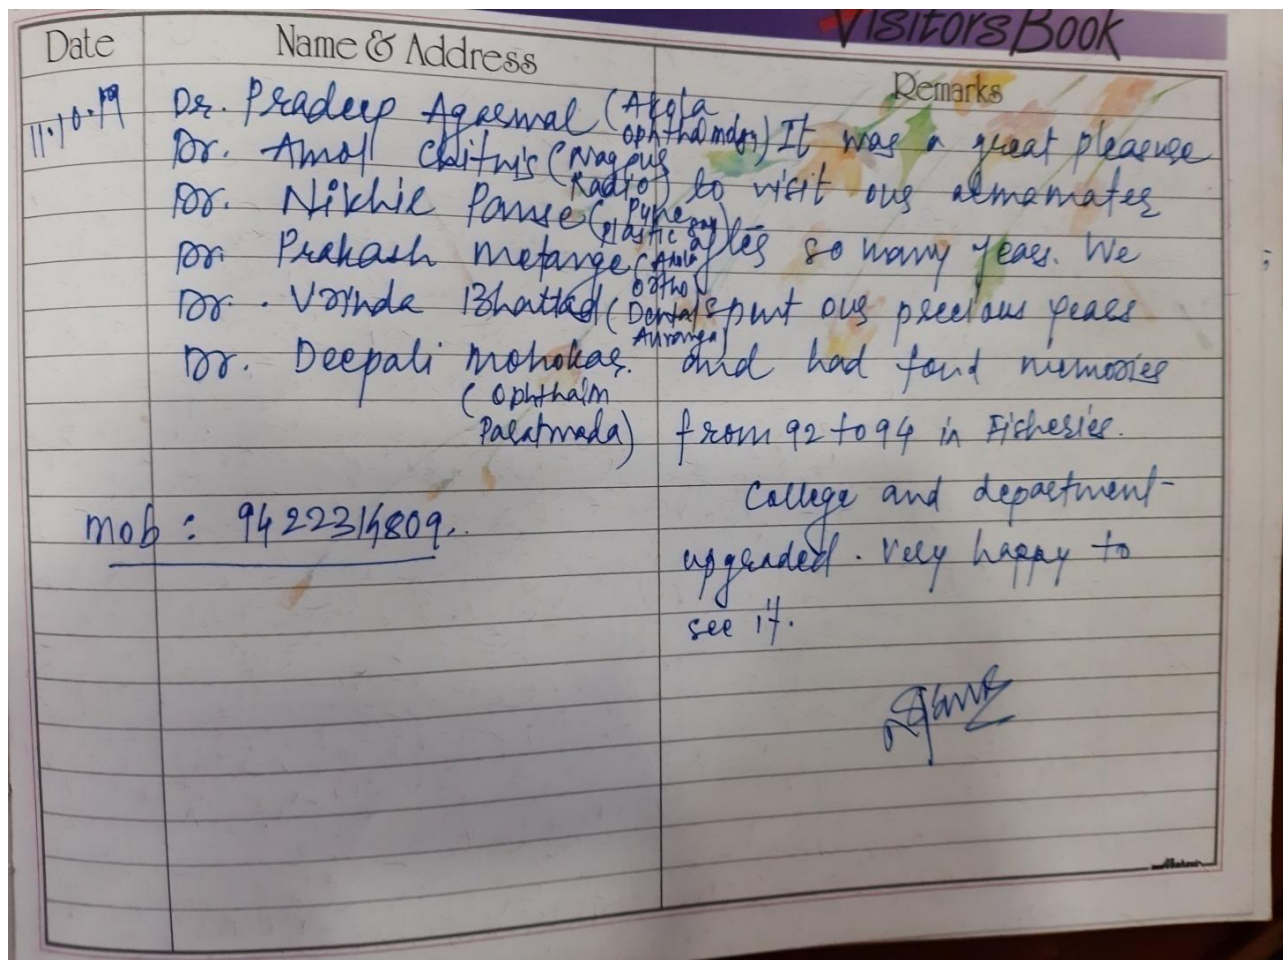 Visitors Book
Date Name & Address Remarks
11.10.19
Dr. Pradeep Agarwal (Akola
Ophthalmology)
Dr. Amol Chitnis (Nagpur
Radio)
Dr. Nikhil Panse (Pune
Plastic
Dr. Prakash Metange (Akola
Ortho)
Dr. Vrinda Bhattad (Dental
Dr. Deepali Mohokar.
(Ophthalm
Paratwada)
mob : 9422314809..
It was a great pleasure
to visit our almamater
after so many years. We
spent our precious years
and had fond memories
from 92 to 94 in Fisheries.
College and department
upgraded. Very happy to
see it.